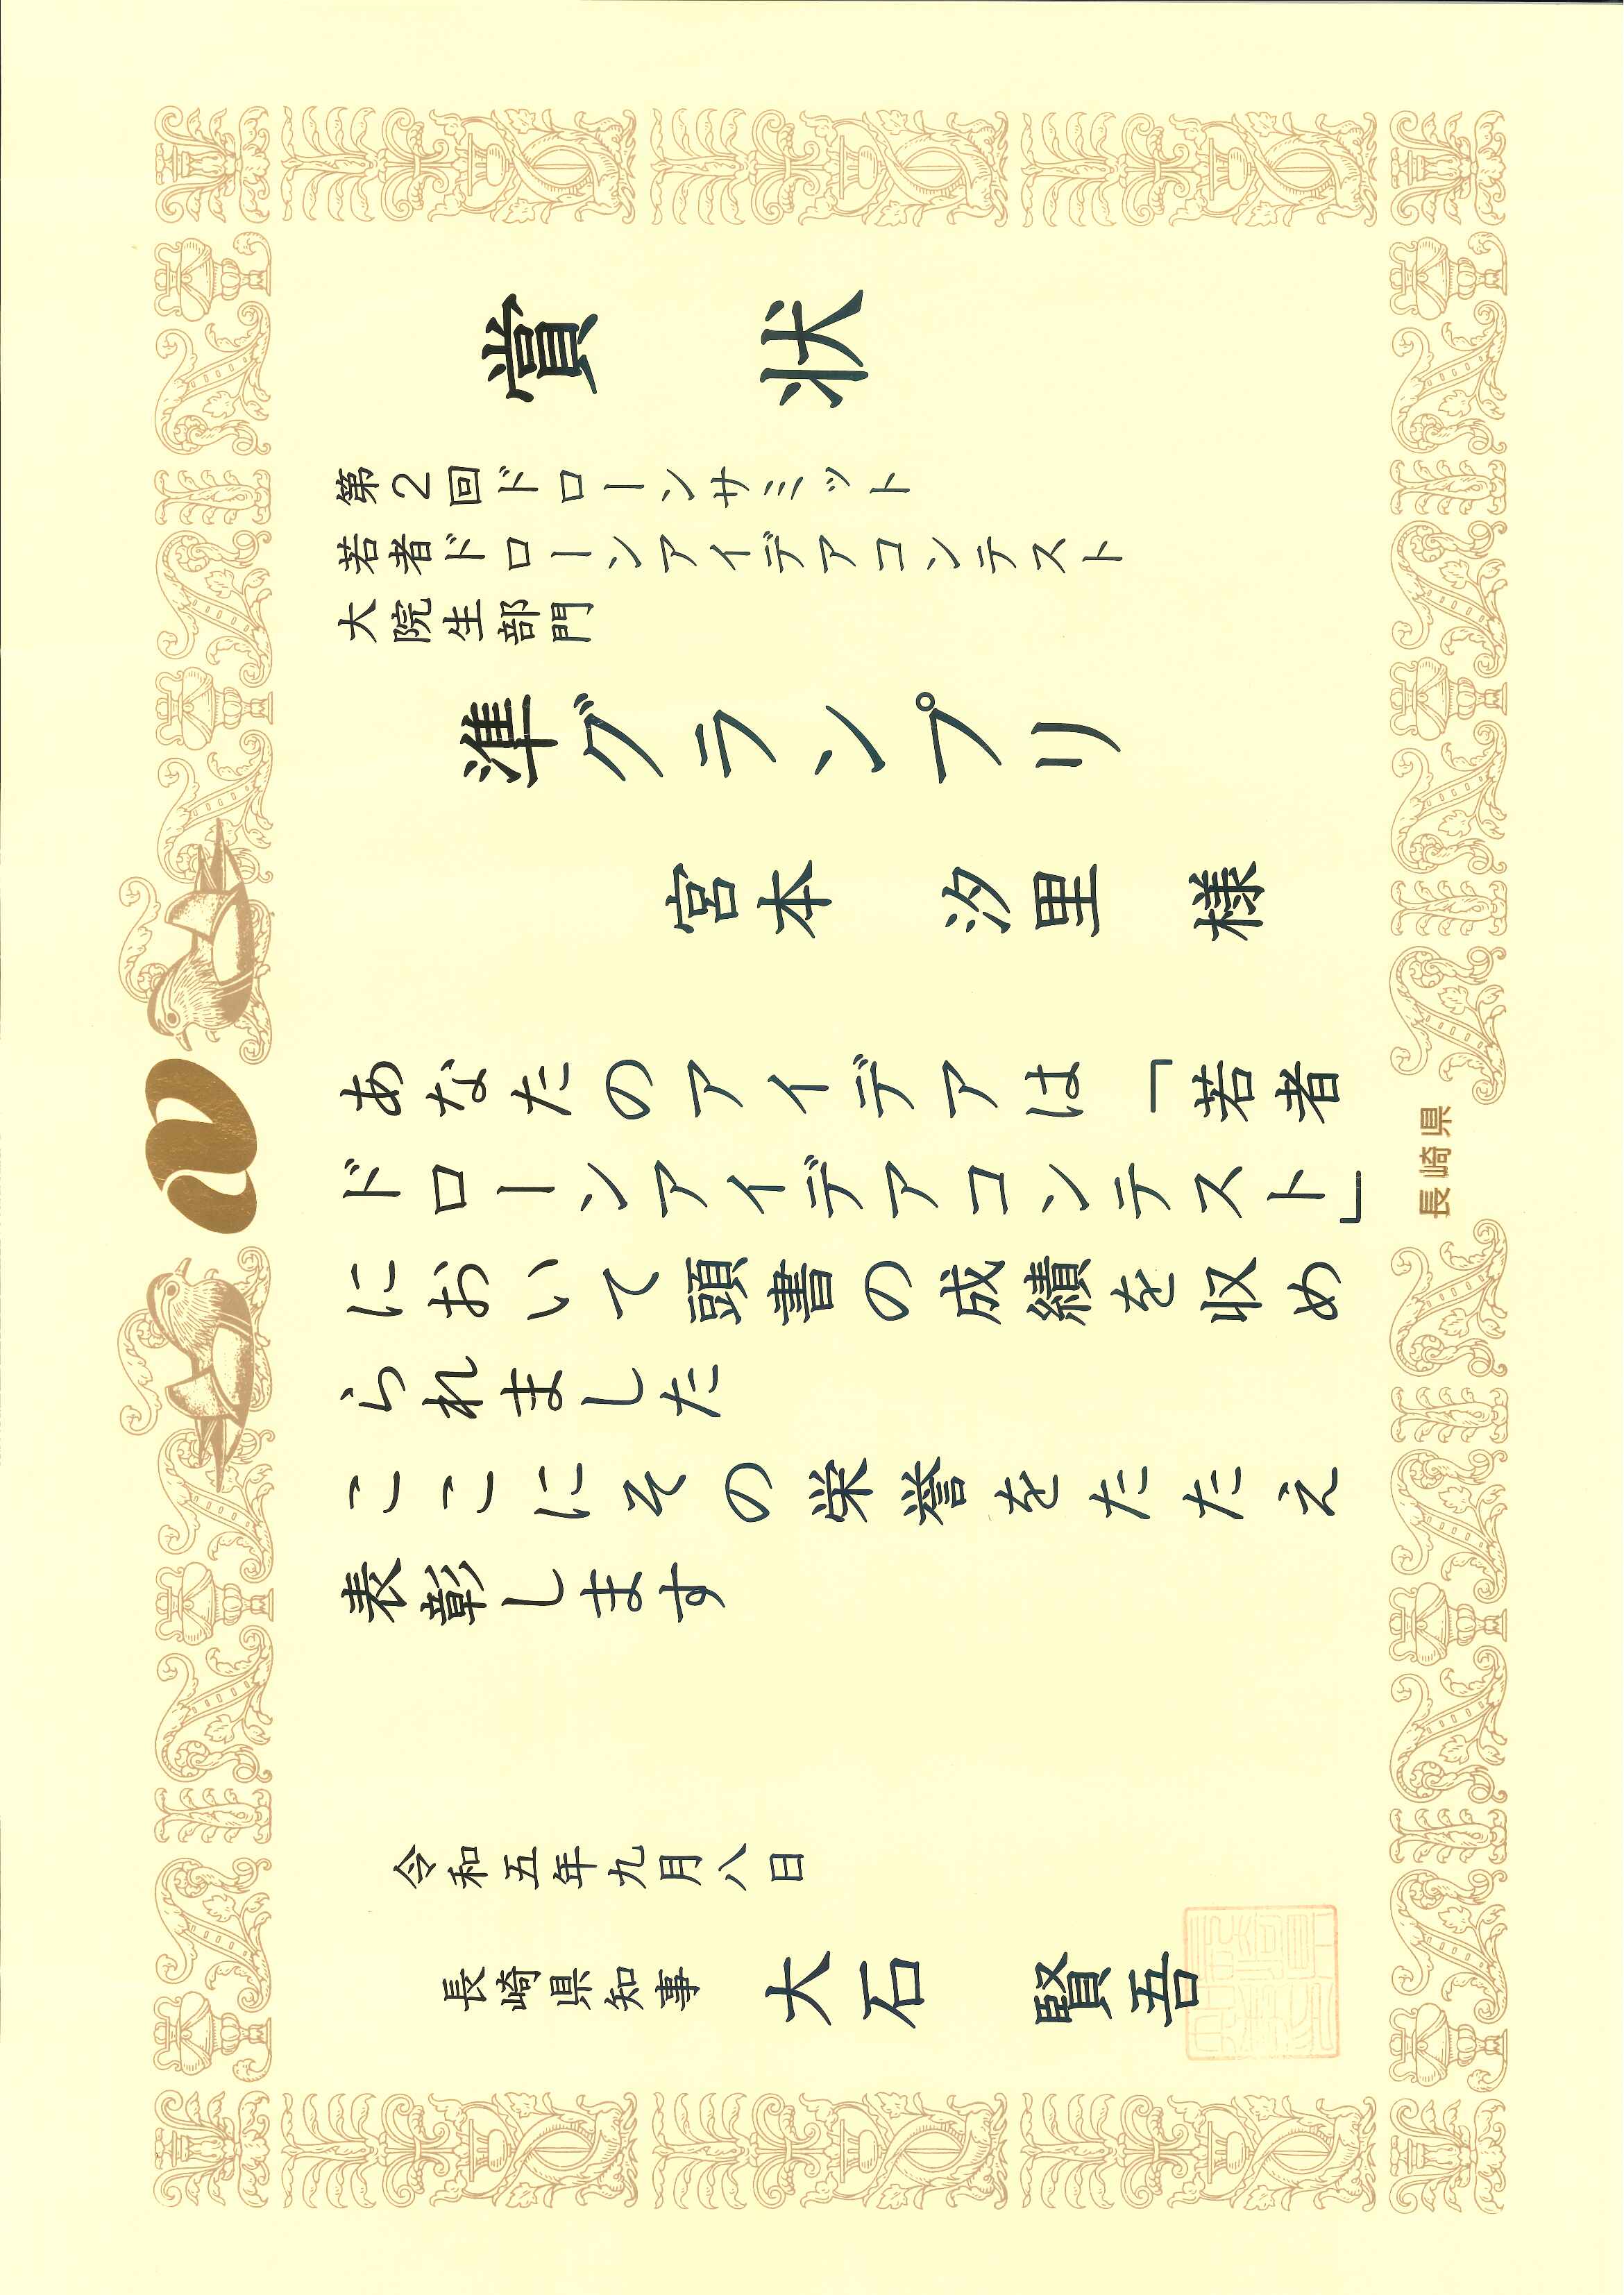 賞状
第2回ドローンサミット
若者ドローンアイデアコンテスト
大院生部門
準グランプリ
宮本 汐里 様
あなたのアイデアは「若者
ドローンアイデアコンテスト」
において頭書の成績を収め
られました
ここにその栄誉をたたえ
表彰します
令和五年九月八日
長崎県知事 大石 賢吾
長崎県